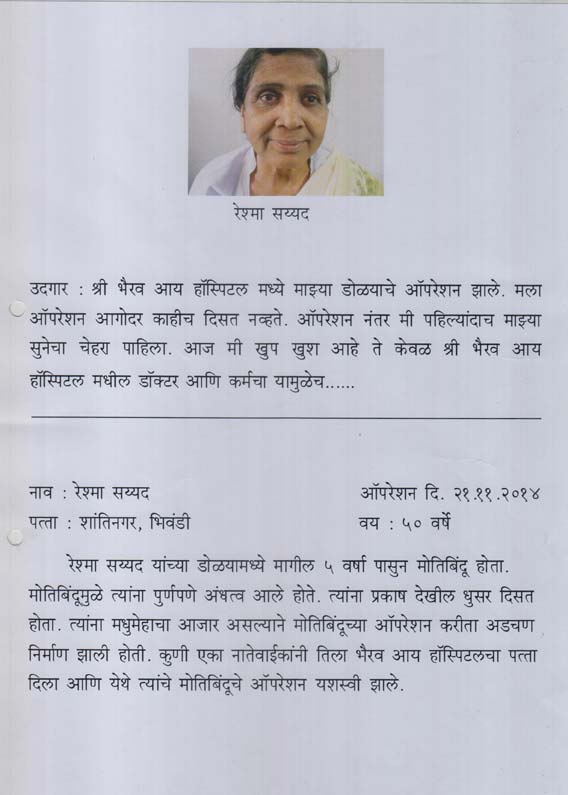 रेश्मा सय्यद
उदगार : श्री भैरव आय हॉस्पिटल मध्ये माझ्या डोळयाचे ऑपरेशन झाले. मला
ऑपरेशन आगोदर काहीच दिसत नव्हते. ऑपरेशन नंतर मी पहिल्यांदाच माझ्या
सुनेचा चेहरा पाहिला. आज मी खुप खुश आहे ते केवळ श्री भैरव आय
हॉस्पिटल मधील डॉक्टर आणि कर्मचा यामुळेच......
नाव : रेश्मा सय्यद ऑपरेशन दि. २१.११.२०१४
पत्ता : शांतिनगर, भिवंडी वय : ५० वर्षे
रेश्मा सय्यद यांच्या डोळयामध्ये मागील ५ वर्षा पासुन मोतिबिंदू होता.
मोतिबिंदूमुळे त्यांना पुर्णपणे अंधत्व आले होते. त्यांना प्रकाष देखील धुसर दिसत
होता. त्यांना मधुमेहाचा आजार असल्याने मोतिबिंदूच्या ऑपरेशन करीता अडचण
निर्माण झाली होती. कुणी एका नातेवाईकांनी तिला भैरव आय हॉस्पिटलचा पत्ता
दिला आणि येथे त्यांचे मोतिबिंदूचे ऑपरेशन यशस्वी झाले.